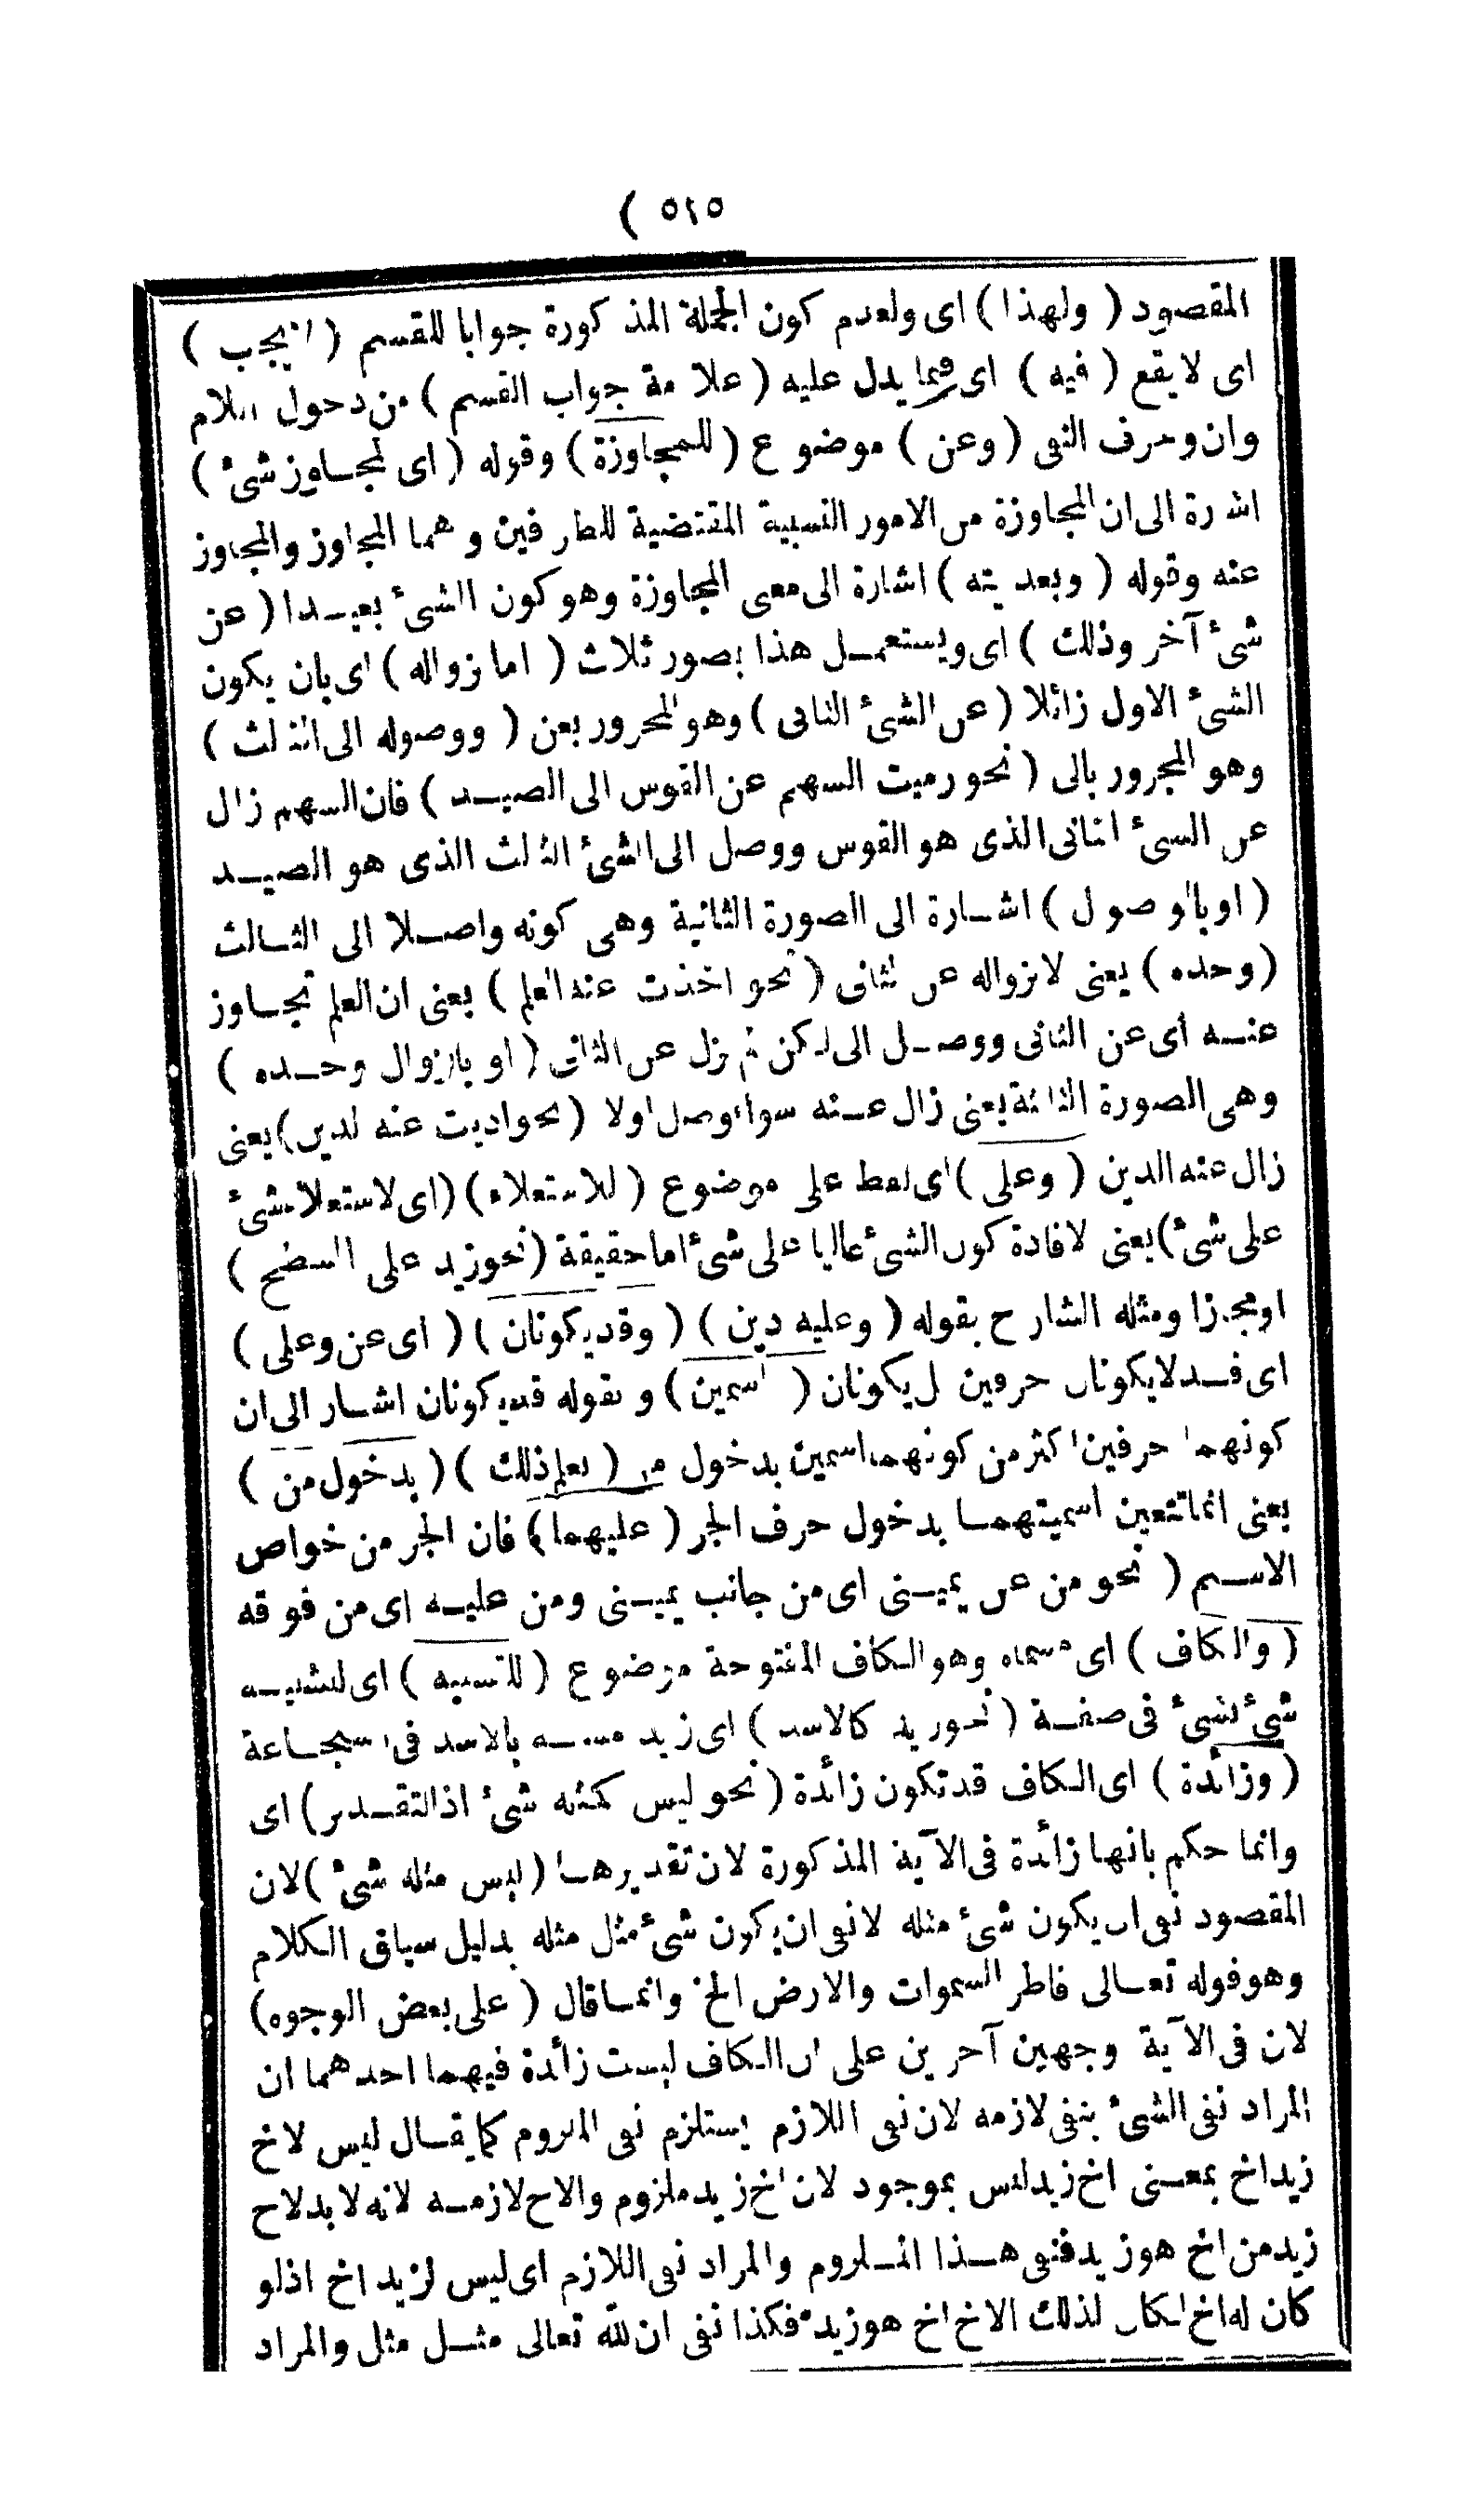 ٥٢٥ )
المقصود ( ولهذا ) اى ولعدم كون الجملة المذكورة جوابا للقسم ( لا يجب )
اى لا يقع ( فيه ) اى فيما يدل عليه ( علامة جواب القسم ) من دخول اللام
وان وحرف النفى ( وعن ) موضوع ( للمجاوزة ) وقوله ( اى لمجاوز شئ )
اشارة الى ان المجاوزة من الامور النسبية المقتضية للطرفين وهما المجاوز والمجاوز
عنه وقوله ( وبعديته ) اشارة الى معنى المجاوزة وهو كون الشئ بعيدا ( عن
شئ آخر وذلك ) اى ويستعمل هذا بصور ثلاث ( اما بزواله ) اى بان يكون
الشئ الاول زائلا ( عن الشئ الثانى ) وهو المجرور بعن ( ووصوله الى الثالث )
وهو المجرور بالى ( نحو رميت السهم عن القوس الى الصيد ) فان السهم زال
عن الشئ الثانى الذى هو القوس ووصل الى الشئ الثالث الذى هو الصيد
( او بالوصول ) اشارة الى الصورة الثانية وهى كونه واصلا الى الثالث
( وحده ) يعنى لا بزواله عن الثانى ( نحو اخذت عنه العلم ) يعنى ان العلم تجاوز
عنه أى عن الثانى ووصل الى لكن لم يزل عن الثانى ( او بالزوال وحده )
وهى الصورة الثالثة يعنى زال عنه سواء وصل اولا ( نحو اديت عنه الدين ) يعنى
زال عنه الدين ( وعلى ) اى لفظ على موضوع ( للاستعلاء ) ( اى لاستعلاء شئ
على شئ ) يعنى لافادة كون الشئ عاليا على شئ اما حقيقة ( نحو زيد على السطح )
او مجازا ومثله الشارح بقوله ( وعليه دين ) ( وقد يكونان ) ( اى عن وعلى )
اى قد لا يكونان حرفين بل يكونان ( اسمين ) وبقوله قد يكونان اشار الى ان
كونهما حرفين اكثر من كونهما اسمين بدخول من ( يعلم ذلك ) ( بدخول من )
يعنى انما تتعين اسميتهما بدخول حرف الجر ( عليهما ) فان الجر من خواص
الاسم ( نحو من عن يمينى اى من جانب يمينى ومن عليه اى من فوقه
( والكاف ) اى مسماه وهو الكاف المفتوحة موضوع ( للتشبيه ) اى لتشبيه
شئ لشئ فى صفة ( نحو زيد كالاسد ) اى زيد مشبه بالاسد فى الشجاعة
( وزائدة ) اى الكاف قد تكون زائدة ( نحو ليس كمثله شئ اذ التقدير ) اى
وانما حكم بانها زائدة فى الآية المذكورة لان تقديرها ( ليس مثله شئ ) لان
المقصود نفى ان يكون شئ مثله لا نفى ان يكون شئ مثل مثله بدليل سياق الكلام
وهو قوله تعالى فاطر السموات والارض الخ وانما قال ( على بعض الوجوه )
لان فى الآية وجهين آخرين على ان الكاف ليست زائدة فيهما احدهما ان
المراد نفى الشئ بنفى لازمه لان نفى اللازم يستلزم نفى الملزوم كما يقال ليس لاخ
زيد اخ بمعنى اخ زيد ليس بموجود لان اخ زيد ملزوم والاخ لازمه لانه لا بد لاخ
زيد من اخ هو زيد فنفى هذا الملزوم والمراد نفى اللازم اى ليس لزيد اخ اذ لو
كان له اخ لكان لذلك الاخ اخ هو زيد فكذا نفى ان لله تعالى مثل مثل والمراد